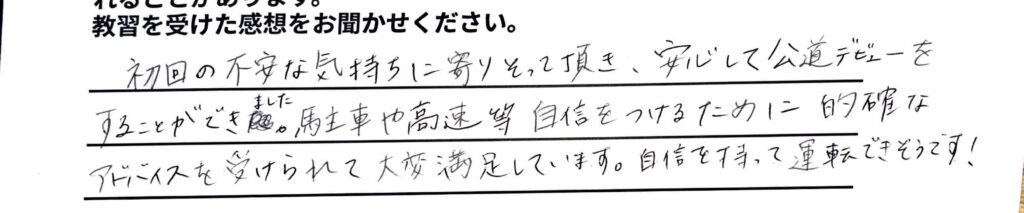 れることがあります。
教習を受けた感想をお聞かせください。
初回の不安な気持ちに寄りそって頂き、安心して公道デビューを
することができました。駐車や高速等 自信をつけるために 的確な
アドバイスを受けられて大変満足しています。自信を持って運転できそうです!